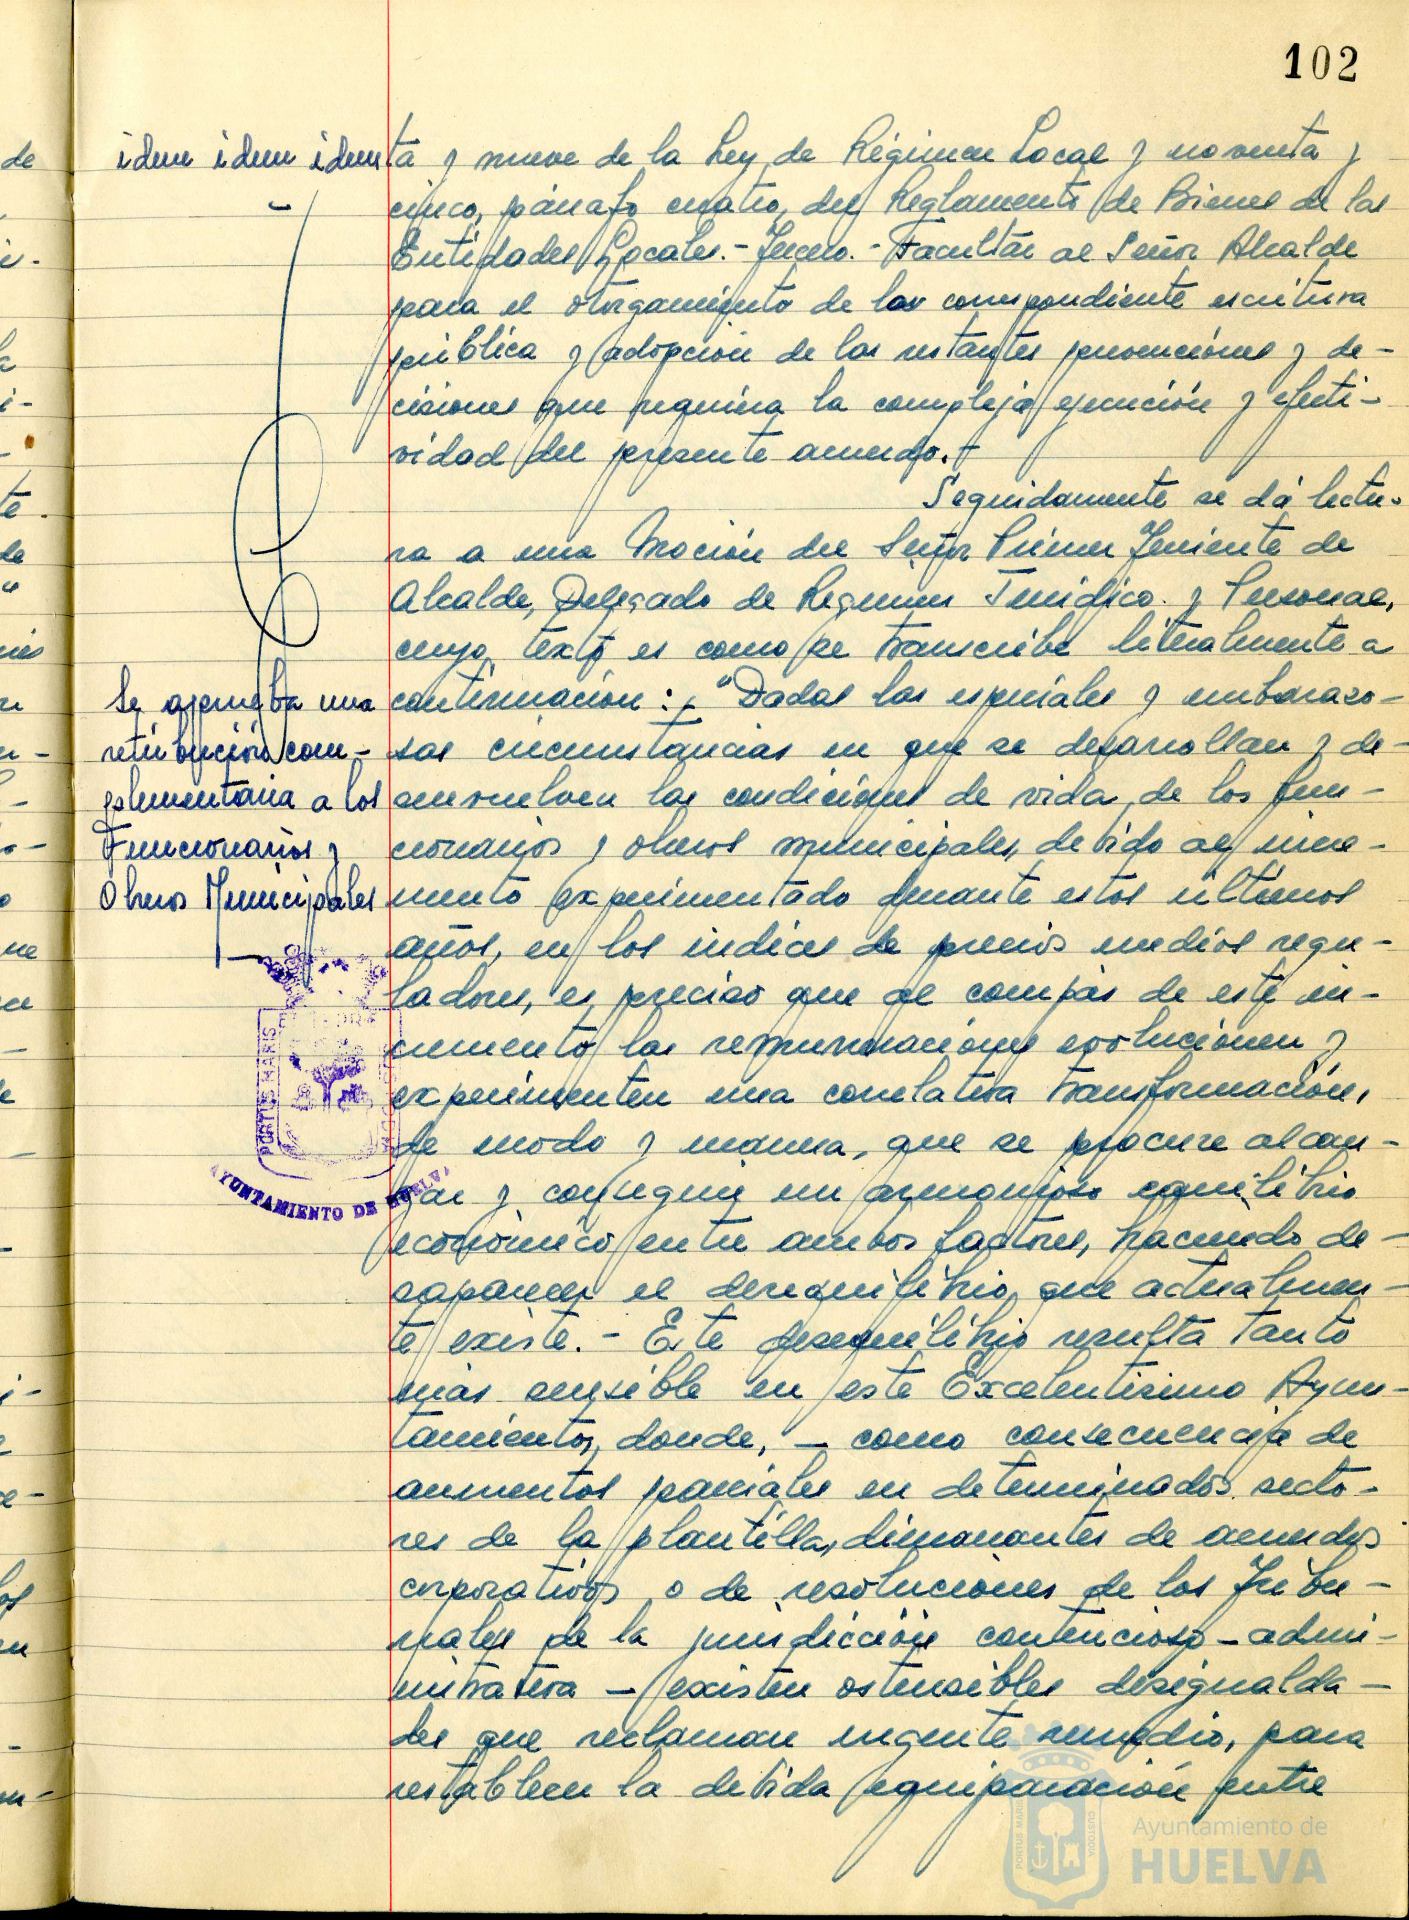 102
idem idem idem
ta y nueve de la Ley de Régimen Local y noventa y
cinco, párrafo cuatro, del Reglamento de Bienes de las
Entidades Locales.- Tercero.- Facultar al Señor Alcalde
para el otorgamiento de la correspondiente escritura
pública y adopción de las restantes prevenciones y de-
cisiones que requiera la compleja ejecución y efecti-
vidad del presente acuerdo.-
Seguidamente se dá lectu-
ra a una Moción del Señor Primer Teniente de
Alcalde, Delegado de Regimen Juridico y Personal,
cuyo texto es como se transcribe literalmente a
continuación:- "Dadas las especiales y embarazo-
sas circunstancias en que se desarrollan y de-
senvuelven las condiciones de vida de los fun-
cionarios y obreros municipales, debido al incre-
mento experimentado durante estos últimos
años, en los indices de precios medios regu-
ladores, es preciso que al compás de este in-
cremento las remuneraciones evolucionen y
experimenten una correlativa transformación,
de modo y manera, que se procure alcan-
zar y conseguir un armonioso equilibrio
económico entre ambos factores, haciendo de-
saparecer el desequilibrio que actualmen-
te existe.- Este desequilibrio resulta tanto
más sensible en este Excelentisimo Ayun-
tamiento, donde, - como consecuencia de
aumentos parciales en determinados secto-
res de la plantilla, dimanantes de acuerdos
corporativos o de resoluciones de los Tribu-
nales de la jurisdicción contencioso-admi-
nistrativa - existen ostensibles desigualda-
des que reclaman urgente remedio, para
restablecer la debida equiparación entre
Se aprueba una
retribución com-
plementaria a los
Funcionarios y
Obreros Municipales
PORTUS MARIS
AYUNTAMIENTO DE HUELVA
Ayuntamiento de
HUELVA